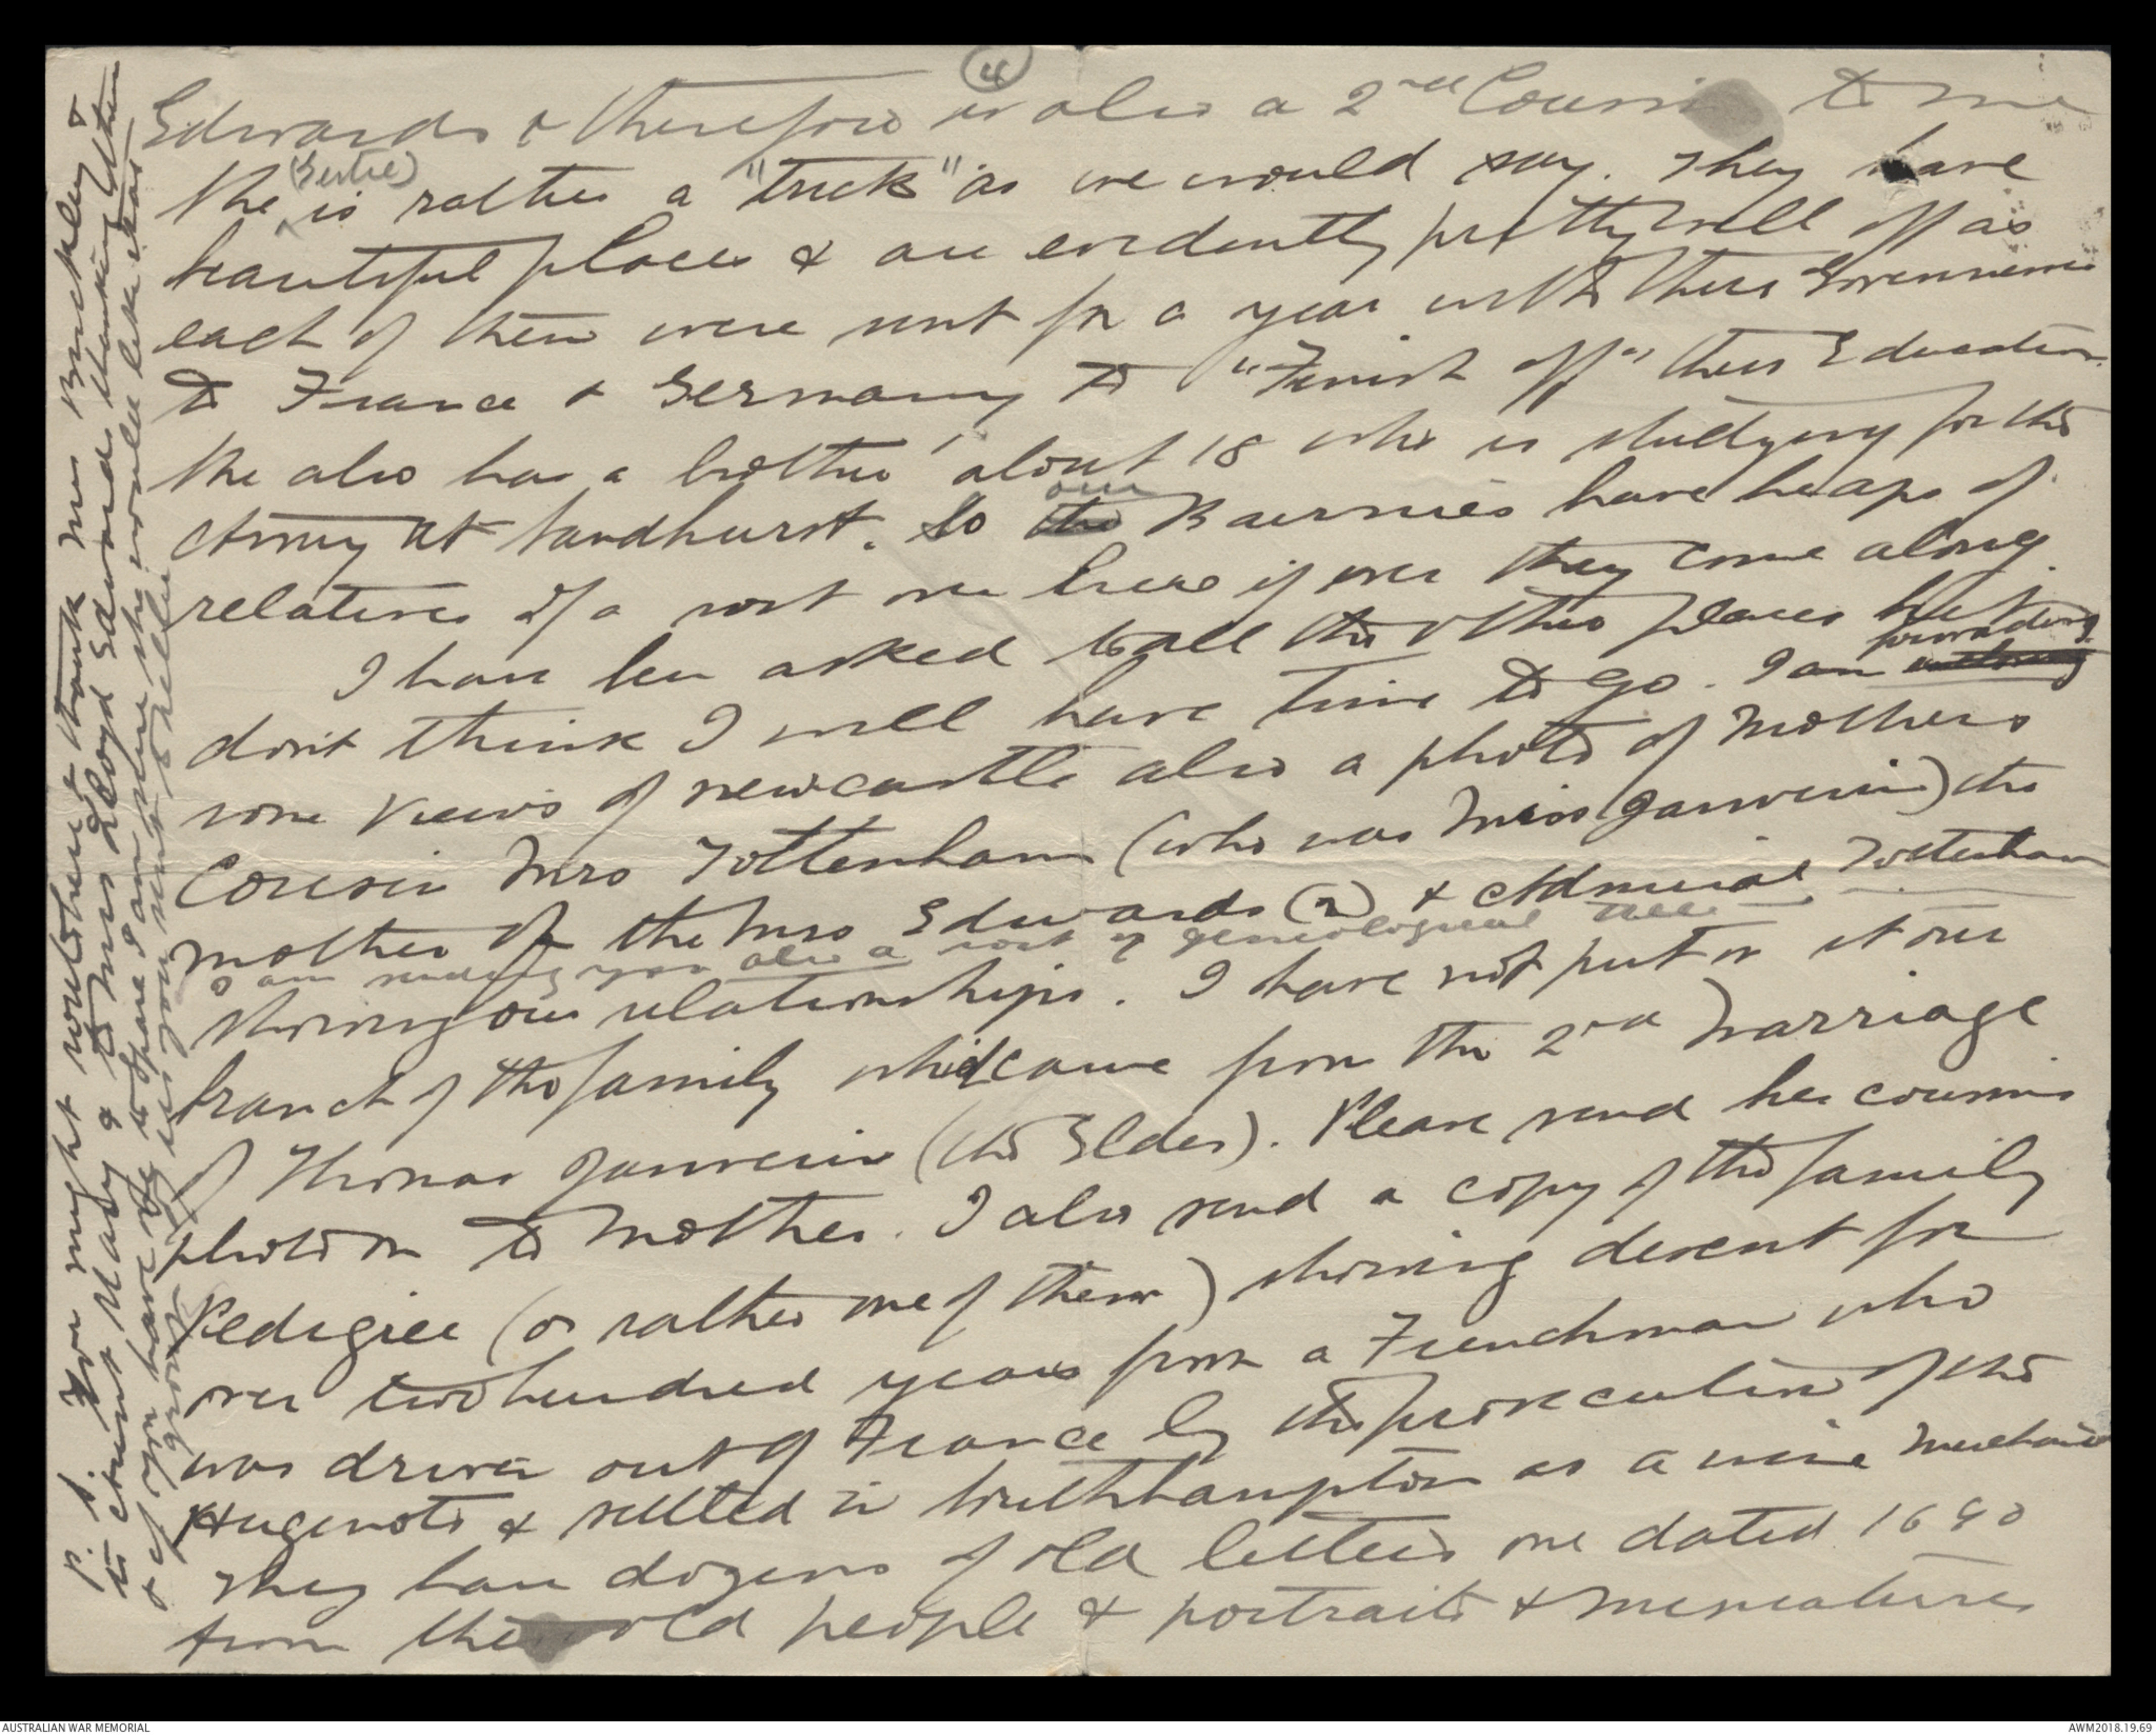 (4)
Edwards & therefore is also a 2nd Cousin to me
She (Gertie) is rather a "trick" as we would say. They have
beautiful places & are evidently pretty well off as
each of them were sent for a year with their Governness
to France & Germany to "Finish off" their Education.
She also has a brother about 18 who is studying for the
Army at Sandhurst. So the our Bairnies have heaps of
relatives of a sort over here if ever they come along.
I have been asked to all the other places but
don't think I will have time to go. I am forwarding
some views of Newcastle also a photo of Mothers
Cousin Mrs Tottenham (who was Miss Janverin) the
mother of the Mrs Edwards (2) & Admiral Tottenham
I am sending you also a sort of geneological tree
showing our relationships. I have not put in it our
branch of the family which came from the 2nd Marriage
of Thomas Janverin (the Elder). Please send her cousins
photo on to Mother. I also send a copy of the family
Pedigree (or rather one of them) showing descent for
over two hundred years from a Frenchman who
was driven out of France by the prosecution of the
Hugenots & settled in Southhampton as a wine Merchant
They have dozens of old letters one dated 1690
from the old people & portraits & meneatures
P.S. You might write her & thank Mrs Brickley &
to Count Mary & to Mrs Lloyd Edwards thanking them
& if you have to spare I am sure she would like
if you sent